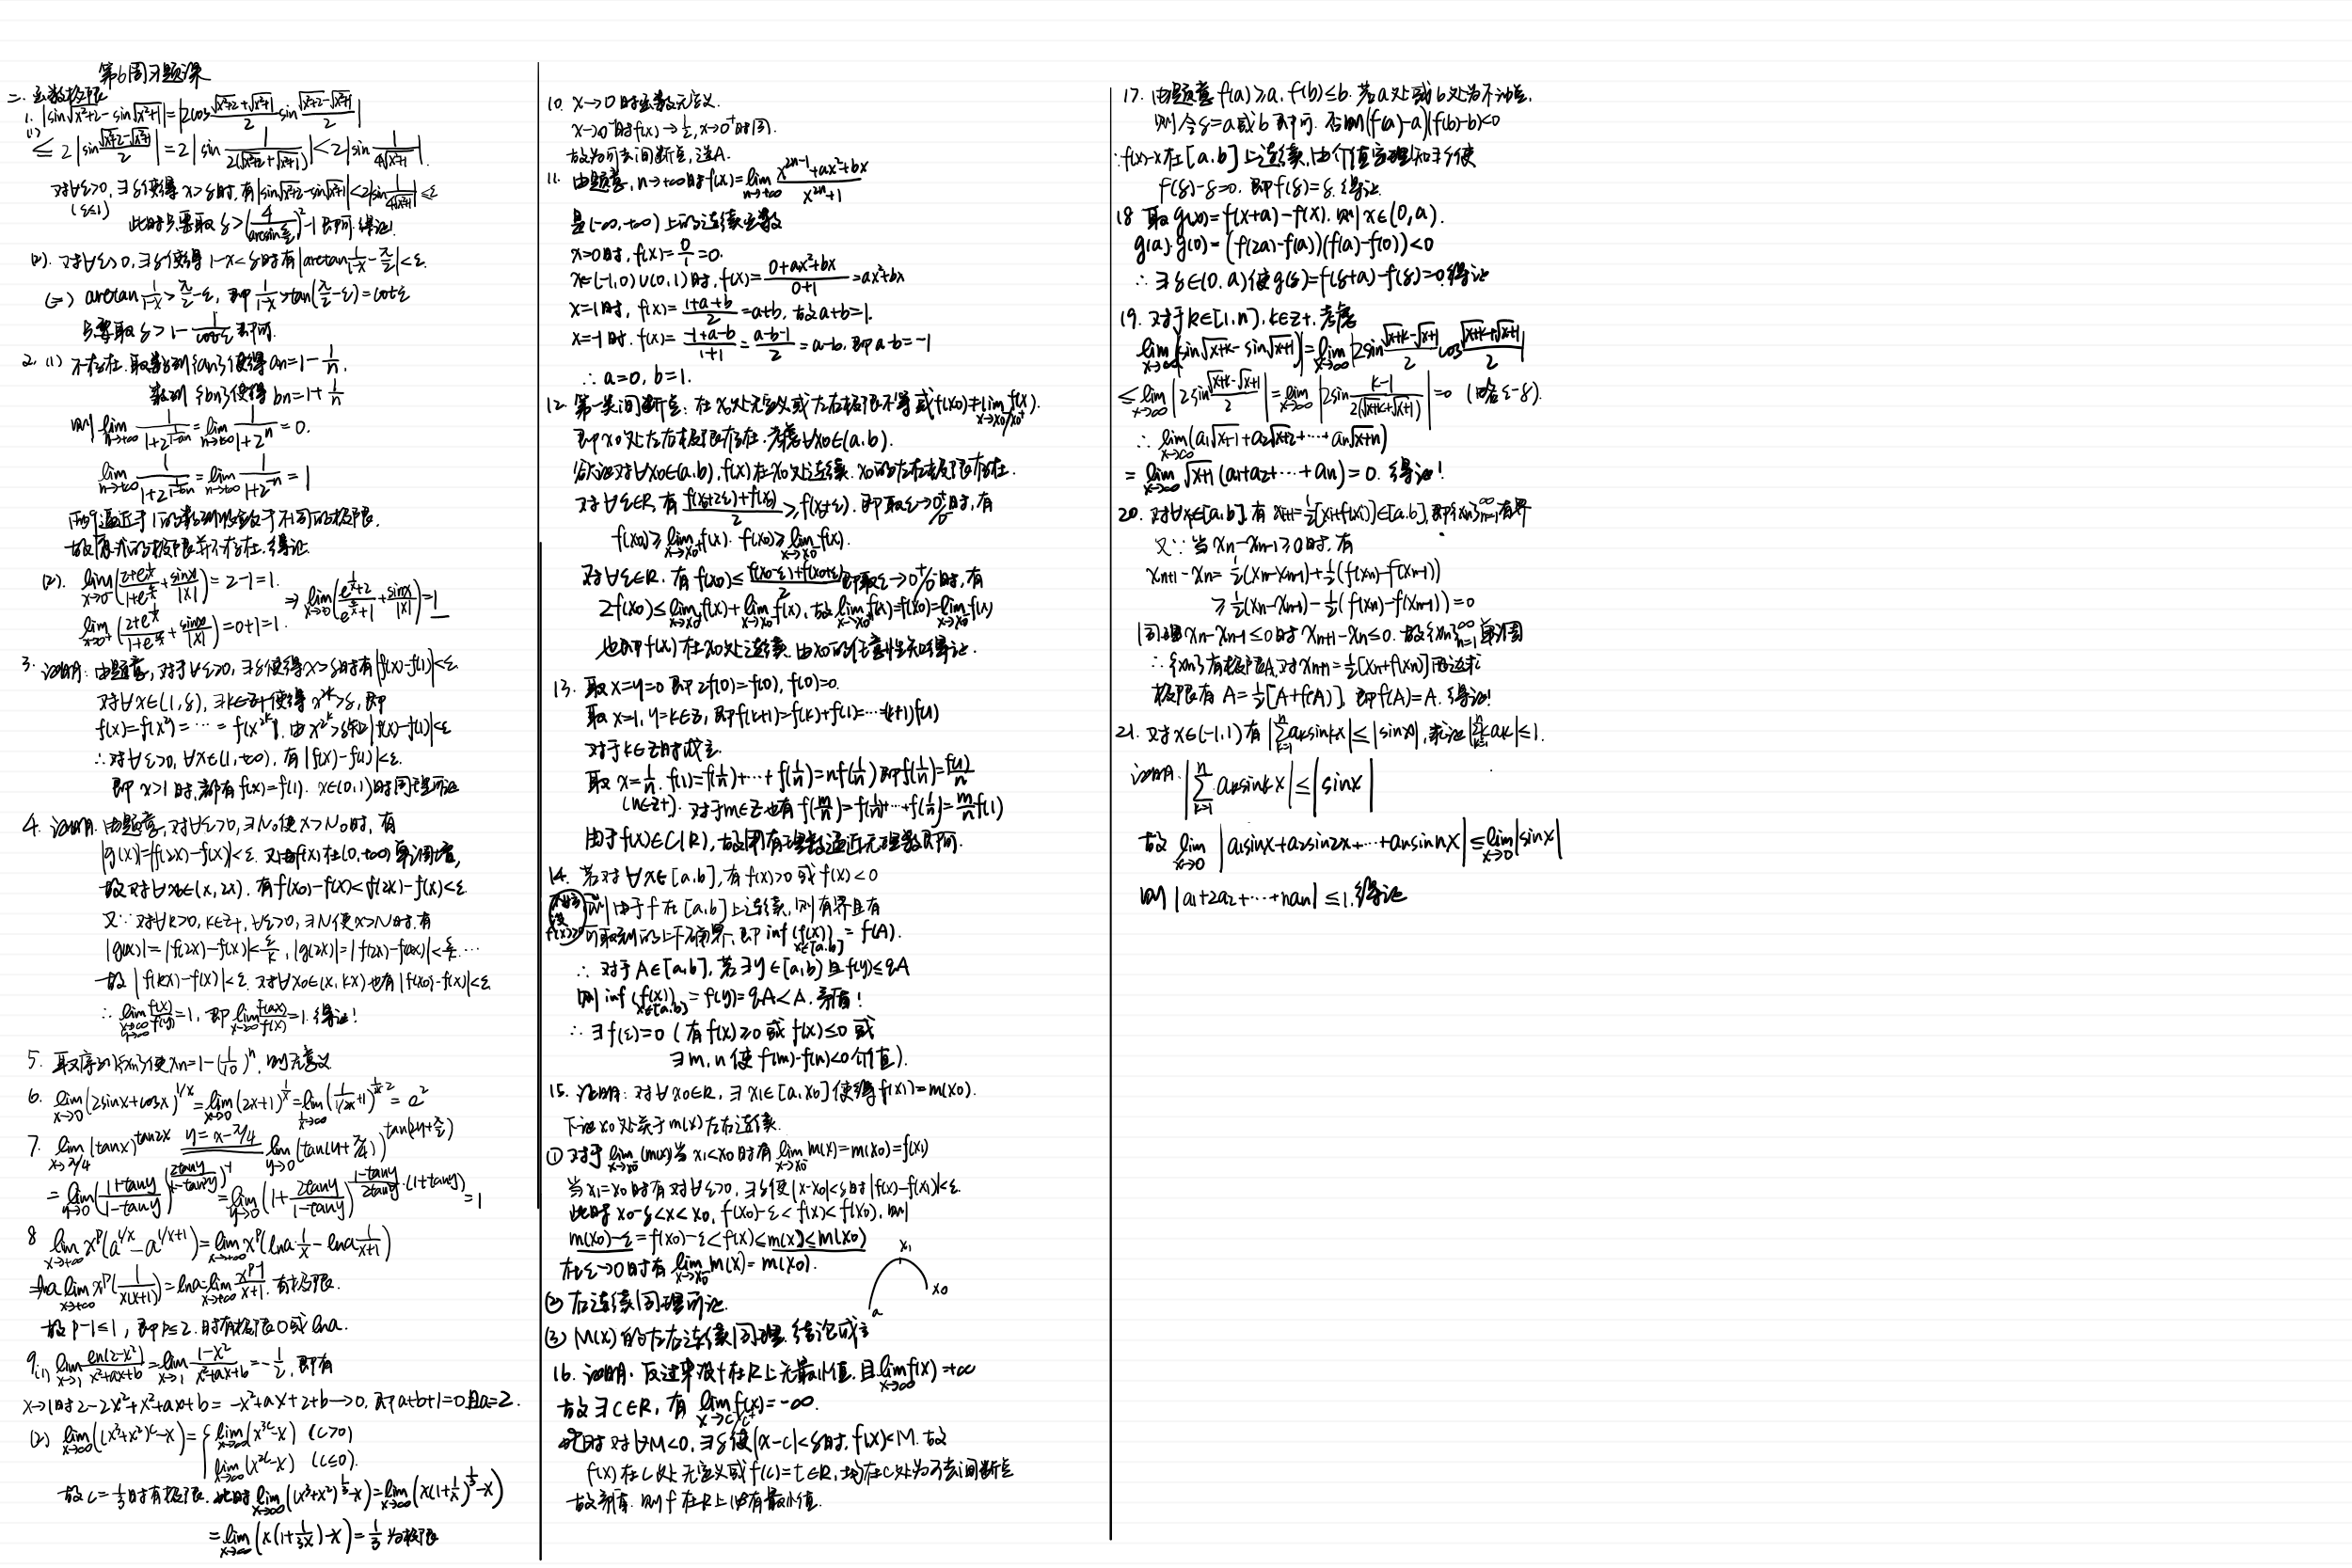 第6周习题课
二. 函数极限
1. |sin√(x²+2) - sin√(x²+1)| = |2cos (√(x²+2)+√(x²+1))/2 sin (√(x²+2)-√(x²+1))/2|
(1) ≤ 2|sin (√(x²+2)-√(x²+1))/2| = 2|sin 1/(2(√(x²+2)+√(x²+1)))| < 2|sin 1/(4√(x²+1))|.
对∀ε>0, ∃δ使得 x>δ时, 有|sin√(x²+2)-sin√(x²+1)|<2|sin 1/(4√(x²+1))|≤ε
(ε≤1) 此时只需取 δ>(4/arcsin(ε/2))²-1 即可. 得证!
(2). 对∀ε>0, ∃δ使得 1-x<δ时有|arctan 1/(1-x) - π/2|<ε.
(=) arctan 1/(1-x) > π/2-ε, 即 1/(1-x)>tan(π/2-ε)=cotε
只需取 δ>1-1/cotε 即可.
2. (1) 不存在. 取数列{an}使得an=1-1/n.
数列{bn}使得 bn=1+1/n
则 lim_{n→+∞} 1/(1+2^{1/(1-an)}) = lim_{n→+∞} 1/(1+2^n) = 0.
lim_{n→+∞} 1/(1+2^{1/(1-bn)}) = lim_{n→+∞} 1/(1+2^{-n}) = 1
两个逼近于1的数列收敛于不同的极限.
故原式的极限并不存在. 得证.
(2). lim_{x→0⁻}((2+e^{1/x})/(1+e^{4/x})+sinx/|x|) = 2-1=1. ⇒ lim_{x→0}((e^{1/x}+2)/(e^{4/x}+1)+sinx/|x|)=1
lim_{x→0⁺}((2+e^{1/x})/(1+e^{4/x})+sinx/|x|)=0+1=1.
3. 证明: 由题意, 对于∀ε>0, ∃δ使得x>δ时有|f(x)-f(1)|<ε.
对∀x∈(1,δ), ∃k∈Z+使得 x^{2^k}>δ, 即
f(x)=f(x²)=⋯=f(x^{2^k}). 由 x^{2^k}>δ知|f(x)-f(1)|<ε
∴对∀ε>0, ∀x∈(1,+∞), 有|f(x)-f(1)|<ε.
即 x>1时, 都有f(x)=f(1). x∈(0,1)时同理可证
4. 证明. 由题意, 对∀ε>0, ∃N₀使x>N₀时, 有
|g(x)|=|f(2x)-f(x)|<ε. 又由f(x)在(0,+∞)单调增,
故对∀x₀∈(x,2x). 有f(x₀)-f(x)<f(2x)-f(x)<ε.
又∵对∀k>0, k∈Z+, ∀ε>0, ∃N使x>N时. 有
|g(x)|=|f(2x)-f(x)|<ε/k, |g(2x)|=|f(2x)-f(4x)|<ε/k ⋯
故|f(kx)-f(x)|<ε. 对∀x₀∈(x,kx)也有|f(x₀)-f(x)|<ε
∴ lim_{x→∞ y→∞} f(x)/f(y)=1, 即 lim_{x→∞} f(ax)/f(x)=1. 得证!
5. 取序列{xn}使xn=1-(1/10)^n, 则无意义
6. lim_{x→0}(2sinx+cosx)^{1/x}=lim_{x→0}(2x+1)^{1/x}=lim_{1/x→∞}(1/(1/2x)+1)^{1/2x·2}=e²
7. lim_{x→π/4}(tanx)^{tan2x} y=x-π/4 lim_{y→0}(tan(y+π/4))^{tan(2y+π/2)}
=lim_{y→0}((1+tany)/(1-tany))^{(2tany/(1-tan²y))^{-1}}=lim_{y→0}(1+2tany/(1-tany))^{(1-tany)/2tany·(1+tany)}=1
8 lim_{x→+∞}x^p(a^{1/x}-a^{1/x+1})=lim_{x→+∞}x^p(lna·1/x-lna 1/(x+1))
=lna lim_{x→+∞}x^p(1/(x(x+1)))=lna·lim_{x→+∞}x^{p-1}/(x+1). 有极限.
故 p-1≤1, 即p≤2. 时有极限0或lna.
9.(1) lim_{x→1} ln(2-x²)/(x²+ax+b)=lim_{x→1}(1-x²)/(x²+ax+b)=-1/2, 即有
x→1时2-2x²+x²+ax+b=-x²+ax+2+b→0, 即a+b+1=0且a=2.
(2) lim_{x→∞}((x³+x²)^c-x)={lim_{x→∞}(x^{3c}-x) (c>0)
lim_{x→∞}(x^{2c}-x) (c≤0).
故c=1/3时有极限. 此时lim_{x→∞}((x³+x²)^{1/3}-x)=lim_{x→∞}(x(1+1/x)^{1/3}-x)
=lim_{x→∞}(x(1+1/3x)-x)=1/3 为极限
10. x→0时函数无定义.
x→0⁻时f(x)→1/2, x→0⁺时同.
故为可去间断点, 选A.
11. 由题意, n→+∞时f(x)=lim_{n→+∞}(x^{2n-1}+ax²+bx)/(x^{2n}+1)
是(-∞,+∞)上的连续函数
x=0时, f(x)=0/1=0.
x∈(-1,0)∪(0,1)时, f(x)=(0+ax²+bx)/(0+1)=ax²+bx
x=1时, f(x)=(1+a+b)/2=a+b, 故a+b=1.
x=-1时. f(x)=(-1+a-b)/(1+1)=(a-b-1)/2=a-b, 即a-b=-1
∴ a=0, b=1.
12. 第一类间断点: 在x₀处无定义或左右极限不等或f(x₀)≠lim_{x→x₀⁻/x₀⁺}f(x).
即x₀处左右极限存在. 考虑∀x₀∈(a,b).
欲证对∀x₀∈(a,b), f(x)在x₀处连续. x₀的左右极限存在.
对∀ε∈R, 有(f(x₀+2ε)+f(x₀))/2≥f(x₀+ε). 即取ε→0⁺/0⁻时, 有
f(x₀)≥lim_{x→x₀⁺}f(x). f(x₀)≥lim_{x→x₀⁻}f(x).
对∀ε∈R. 有f(x₀)≤(f(x₀-ε)+f(x₀+ε))/2 即取ε→0⁺/0⁻时, 有
2f(x₀)≤lim_{x→x₀⁺}f(x)+lim_{x→x₀⁻}f(x). 故lim_{x→x₀⁺}f(x)=f(x₀)=lim_{x→x₀⁻}f(x)
也即f(x)在x₀处连续. 由x₀的任意性知得证.
13. 取x=y=0即2f(0)=f(0), f(0)=0.
取x=1, y=k∈Z, 即f(k+1)=f(k)+f(1)=⋯=(k+1)f(1)
对于k∈Z时成立.
取 x=1/n. f(1)=f(1/n)+⋯+f(1/n)=nf(1/n)即f(1/n)=f(1)/n
(n∈Z+). 对于m∈Z也有f(m/n)=f(1/n)+⋯+f(1/n)=m/n f(1)
由于f(x)∈C(R), 故用有理数逼近无理数即可.
14. 若对∀x∈[a,b], 有f(x)>0或f(x)<0
不妨设f(x)>0 则由于f在[a,b]上连续, 则有界且有
可取到的上下确界, 即 inf_{x∈[a,b]}(f(x))=f(A).
∴ 对于A∈[a,b], 若∃y∈[a,b]且f(y)≤qA
则inf_{x∈[a,b]}(f(x))=f(y)=qA<A. 矛盾!
∴∃f(ε)=0 (有f(x)≥0或f(x)≤0或
∃m,n使f(m)·f(n)<0介值).
15. 证明: 对∀x₀∈R, ∃x₁∈[a,x₀]使得f(x₁)=m(x₀).
下证x₀处关于m(x)左右连续.
① 对于lim_{x→x₀⁻}(m(x))当x₁<x₀时有lim_{x→x₀⁻}m(x)=m(x₀)=f(x₁)
当x₁=x₀时有对∀ε>0, ∃δ使|x-x₀|<δ时|f(x)-f(x₁)|<ε.
此时x₀-δ<x<x₀, f(x₀)-ε<f(x)<f(x₀), 则
m(x₀)-ε=f(x₀)-ε<f(x)≤m(x)≤m(x₀)
在ε→0时有lim_{x→x₀⁻}m(x)=m(x₀).
a x₁ x₀
② 右连续同理可证.
③ M(x)的左右连续同理. 结论成立
16. 证明. 反过来设f在R上无最小值. 且lim_{x→∞}f(x)=+∞
故∃C∈R, 有 lim_{x→c⁻/c⁺}f(x)=-∞.
此时对∀M<0, ∃δ使|x-c|<δ时, f(x)<M. 故
f(x)在c处无定义或f(c)=t∈R, 均在c处为可去间断点
故矛盾. 则f在R上必有最小值.
17. 由题意f(a)≥a, f(b)≤b. 若a处或b处为不动点.
则令δ=a或b即可. 否则(f(a)-a)(f(b)-b)<0
∵f(x)-x在[a,b]上连续, 由介值定理知∃δ使
f(δ)-δ=0. 即f(δ)=δ. 得证.
18 取g(x)=f(x+a)-f(x). 则x∈(0,a).
g(a)·g(0)=(f(2a)-f(a))(f(a)-f(0))<0
∴ ∃δ∈(0,a)使g(δ)=f(δ+a)-f(δ)=0.得证
19. 对于k∈[1,n], k∈Z+, 考虑
lim_{x→∞}|sin√(x+k)-sin√(x+1)|=lim_{x→∞}|2sin (√(x+k)-√(x+1))/2 cos (√(x+k)+√(x+1))/2|
≤lim_{x→∞}|2sin (√(x+k)-√(x+1))/2|=lim_{x→∞}|2sin (k-1)/(2(√(x+k)+√(x+1)))|=0 (略ε-δ).
∴ lim_{x→∞}(a₁√(x+1)+a₂√(x+2)+⋯+an√(x+n))
=lim_{x→∞}√(x+1)(a₁+a₂+⋯+an)=0. 得证!
20. 对∀x₁∈[a,b], 有 x_{n+1}=1/2[x₁+f(x₁)]∈[a,b], 即{xn}_{n=1}^∞有界
又∵当xn-xn-1≥0时, 有
xn+1-xn=1/2(xn-xn-1)+1/2(f(xn)-f(xn-1))
≥1/2(xn-xn-1)-1/2(f(xn)-f(xn-1))=0
同理xn-xn-1≤0时xn+1-xn≤0. 故{xn}_{n=1}^∞单调
∴{xn}有极限A, 对xn+1=1/2[xn+f(xn)]两边求
极限有 A=1/2[A+f(A)], 即f(A)=A. 得证!
21. 对x∈(-1,1)有|∑_{k=1}^n ak sinkx|≤|sinx|, 求证|∑_{k=1}^n k ak|≤1.
证明. |∑_{k=1}^n ak sinkx|≤|sinx|
故 lim_{x→0}|a₁sinx+a₂sin2x+⋯+an sin nx|≤lim_{x→0}|sinx|
则|a₁+2a₂+⋯+nan|≤1. 得证